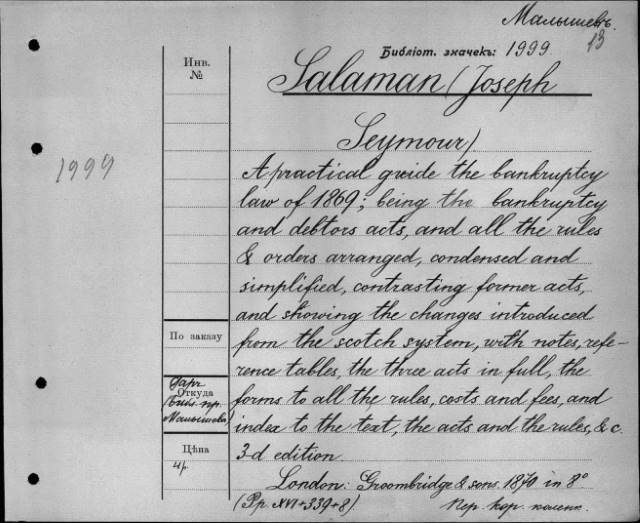 Малышевъ.
13
Библіот. значекъ: 1999.
Инв.
№
Salaman (Joseph
Seymour)
1999
A practical guide the bankruptcy
law of 1869; being the bankruptcy
and debtors acts, and all the rules
& orders arranged, condensed and
simplified, contrasting former acts,
and showing the changes introduced
По заказу
from the scotch system, with notes, refe-
rence tables, the three acts in full, the
Откуда
Библ. пр.
Малышева
forms to all the rules, costs and fees, and
index to the text, the acts and the rules, & c.
Цѣна
3-d edition.
London: Groombridge & sons. 1870 in 8°
(Pp. XVI+339+8)
Пер. кор. коленк.